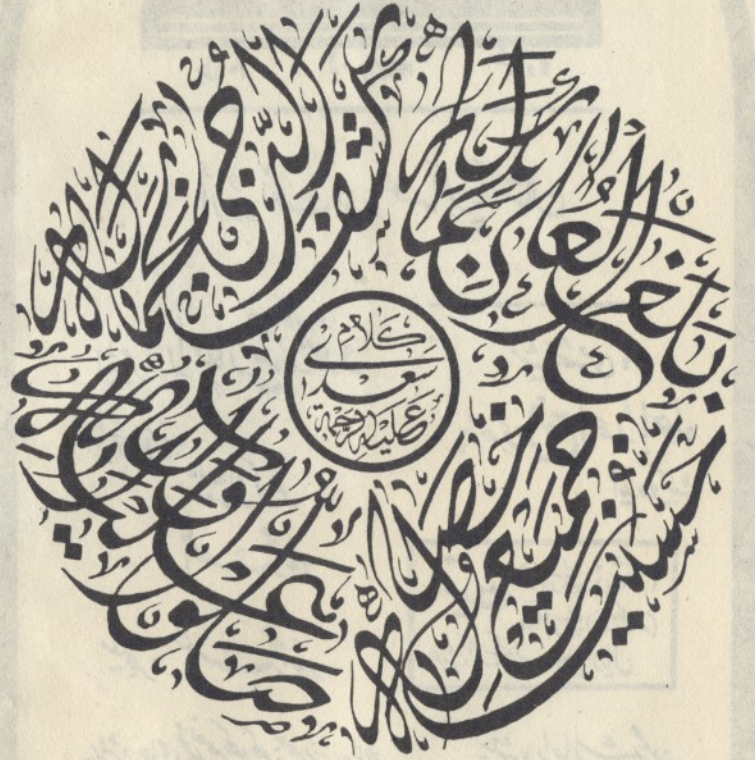 بَلَغَ الْعُلَى بِكَمَالِهِ
كَشَفَ الدُّجَى بِجَمَالِهِ
حَسُنَتْ جَمِيعُ خِصَالِهِ
صَلُّوا عَلَيْهِ وَآلِهِ
كَلَامِ
سَعْدِى
عَلَيْهِ رَحْمَة